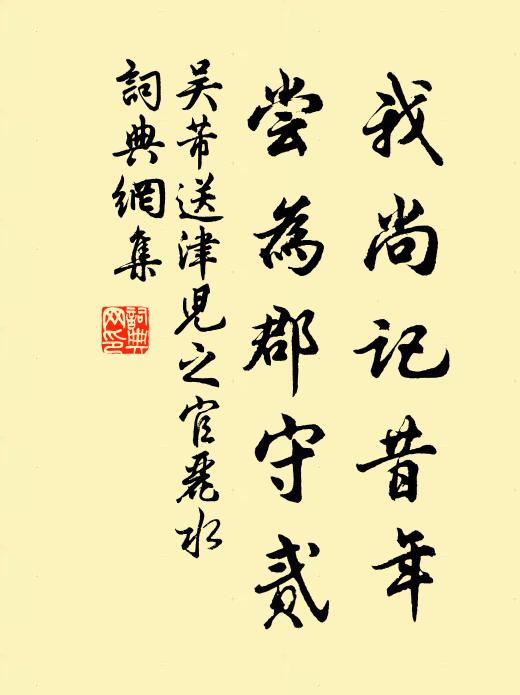 我尚记昔年
尝為郡守贰
吴芾送津儿之官丽水
詞典網集
詞典网印